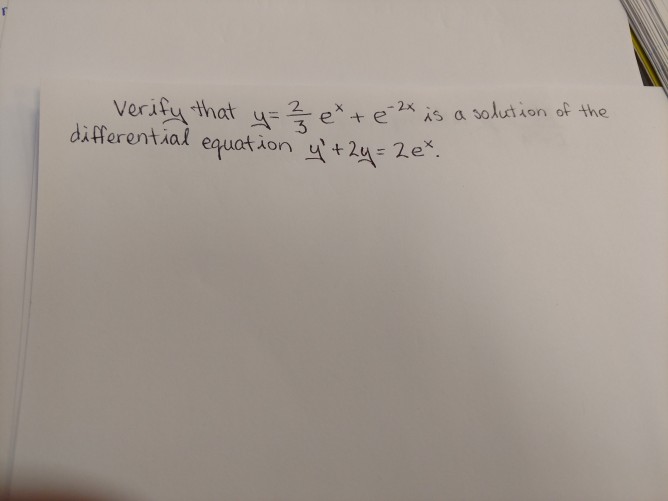 Verify that y = 2/3 e^x + e^-2x is a solution of the
differential equation y' + 2y = 2e^x.